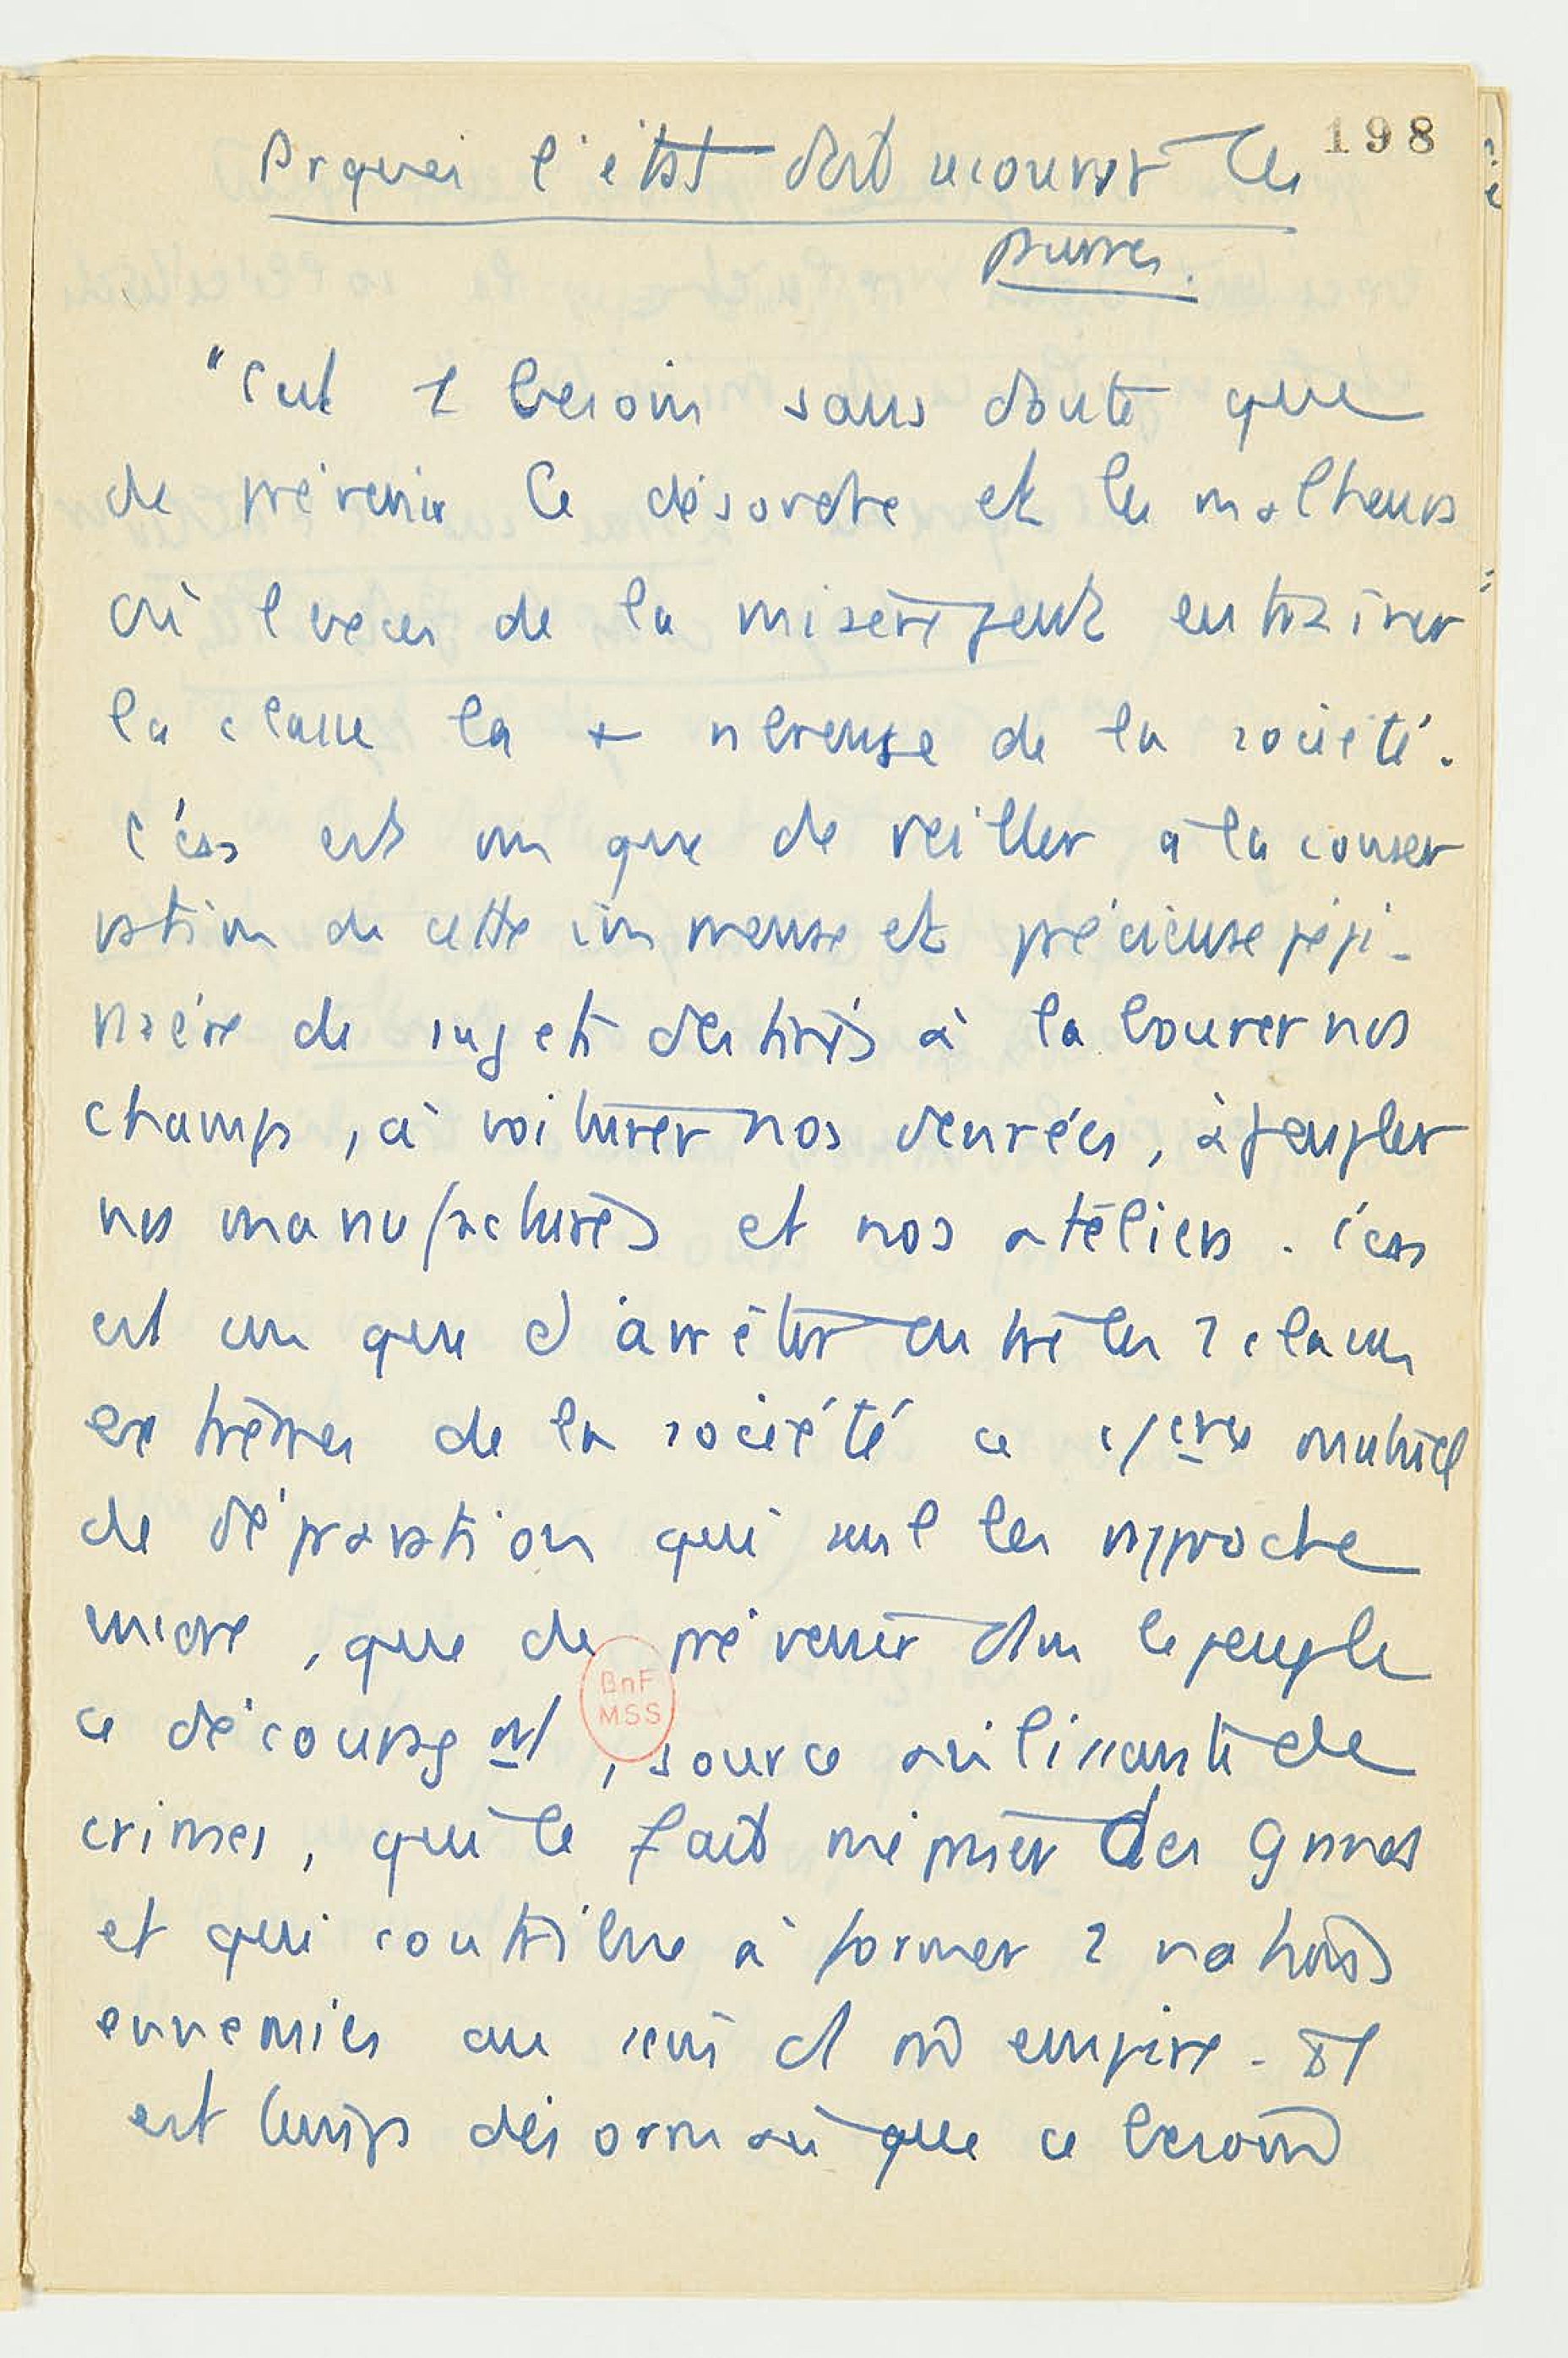 198
Pr quoi l'état doit secourir les
pauvres.
"C'est 1 besoin sans doute que
de prévenir le désordre et les malheurs
où l'excès de la misère peut entraîner
la classe la + nbreuse de la société.
C'en est un que de veiller à la conser
vation de cette immense et précieuse pépi-
nière de sujets destinés à labourer nos
champs, à voiturer nos denrées, à peupler
nos manufactures et nos ateliers. C'en
est un que d'arrêter entre les 2 classes
extrêmes de la société ce c/erce mutuel
de dépravation qui seul les rapproche
encore, que de prévenir dans le peuple
ce découragmt, source avilissante de
crimes, qui le fait mépriser des grands
et qui contribue à former 2 nations
ennemies au sein d'1 mê empire. Il
est temps désormais que ce besoin
BnF
MSS